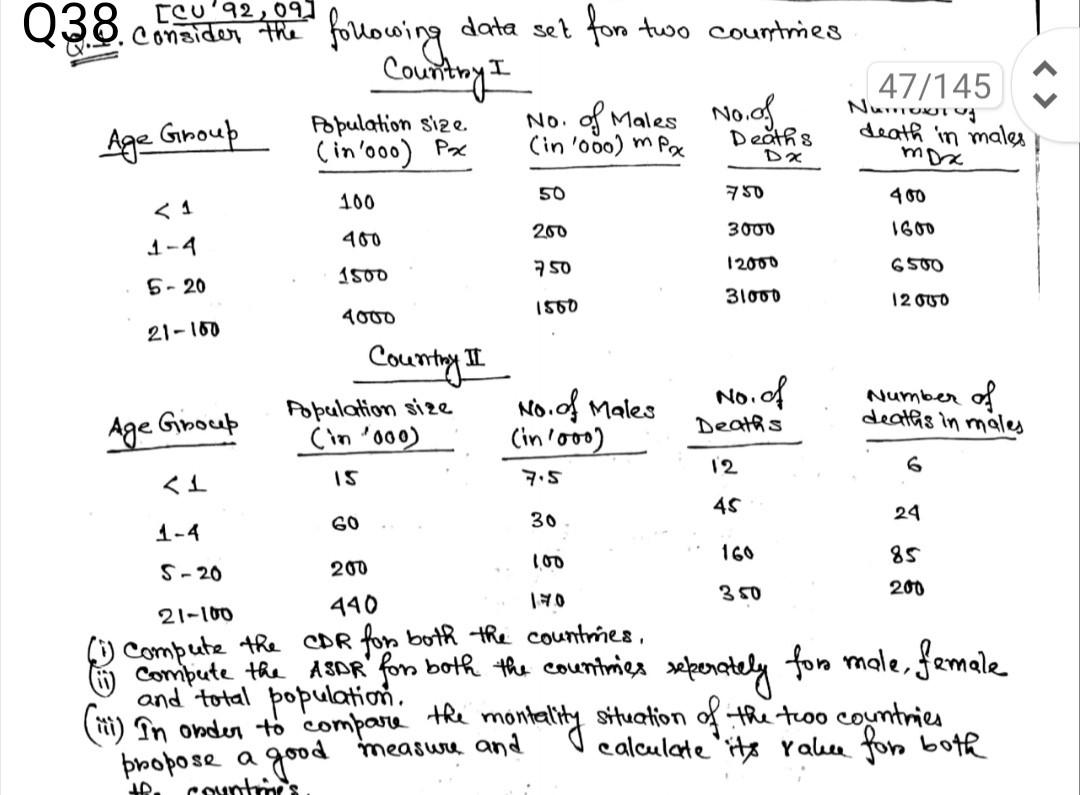 Q38. [CU'92,09]
Consider the following data set for two countries
Country I
47/145
Age Group Population size (in '000) Px No. of Males (in '000) mPx No. of Deaths Dx death in males mDx
<1 100 50 750 400
1-4 400 200 3000 1600
5-20 1500 750 12000 6500
21-100 4000 1500 31000 12000
Country II
Age Group Population size (in '000) No. of Males (in '000) No. of Deaths Number of deaths in males
<1 15 7.5 12 6
1-4 60 30 45 24
5-20 200 100 160 85
21-100 440 170 350 200
(i) Compute the CDR for both the countries,
(ii) Compute the ASDR for both the countries seperately for male, female
and total population.
(iii) In order to compare the mortality situation of the two countries
propose a good measure and calculate its value for both
the countries.